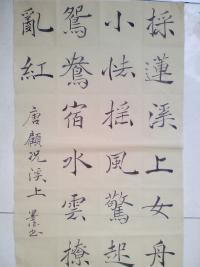 採蓮溪上女舟
小怯搖風驚起
鴛鴦宿水雲撩
亂紅
唐顧況溪上